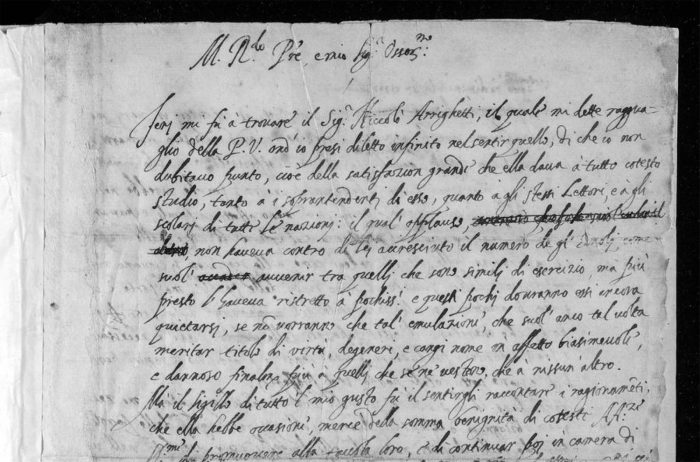 M. R.do Pre e mio Sig.r Osser.mo
Ieri mi fu à trouare il Sig.r Niccolò Arrighetti, il quale mi dette raggua-
glio della P.V. ond'io presi diletto infinito nel sentir quello, di che io non
dubitavo punto, cioè della satisfazion grande che ella dava à tutto cotesto
studio, tanto à i soprintendenti di esso, quanto a gli stessi Lettori e a gli
scolari di tutte le nazioni: il qual applauso,
non haveva contro di lei accresciuto il numero de gl' emoli, come
suol' avvenir tra quelli che sono simili di esercizio, ma più
presto l'haveva ristretto à pochiss.i e questi pochi dovranno essi ancora
quietarsi, se non vorranno che tal' emulazione che suol' anco tal volta
meritar titolo di virtù, degeneri, e cangi nome in affetto biasimevole,
e dannoso finalmte più a quelli che se ne vestono, che a nissun' altro.
Ma il sigillo di tutto l mio gusto fu il sentirgli raccontare i ragionamenti,
che ella hebbe occasione, mercè della somma benignità di coteste AA.ze
Ser.me di promuovere alla tavola loro, e di continuar poi in camera di